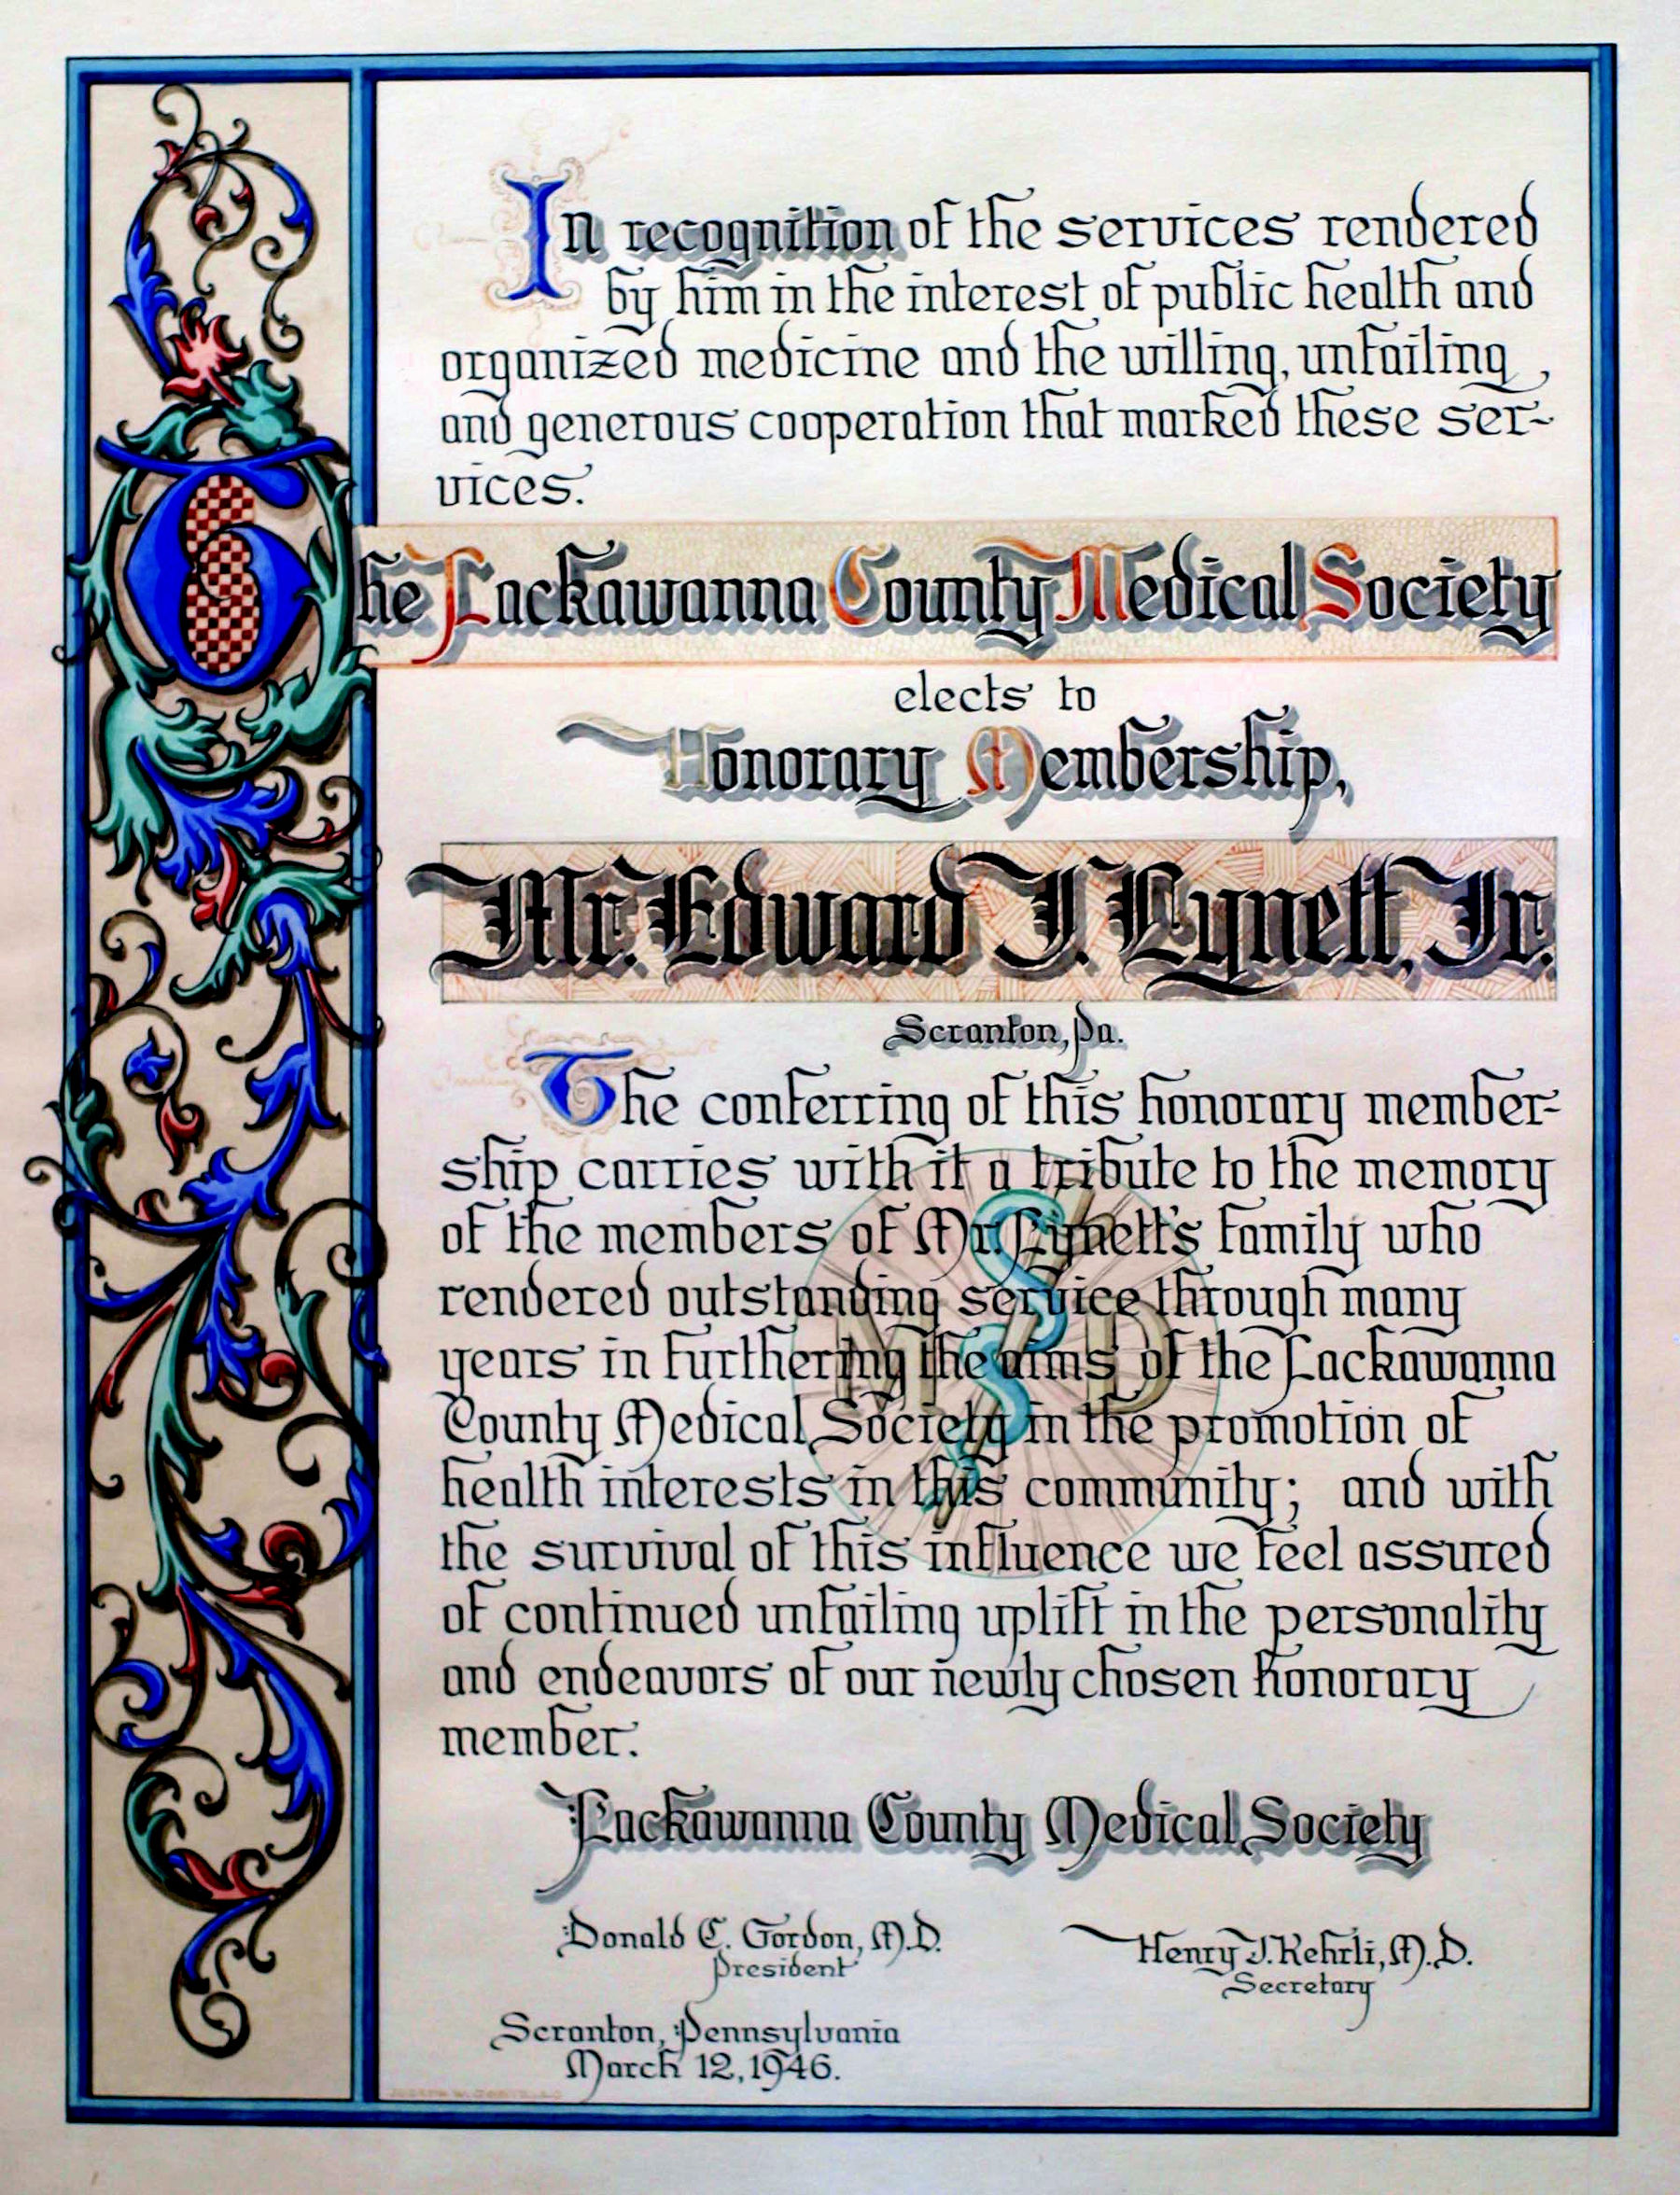 In recognition of the services rendered
by him in the interest of public health and
organized medicine and the willing, unfailing,
and generous cooperation that marked these ser-
vices.
The Lackawanna County Medical Society
elects to
Honorary Membership,
Mr. Edward J. Lynett, Jr.
Scranton, Pa.
The conferring of this honorary member-
ship carries with it a tribute to the memory
of the members of Mr. Lynett's family who
rendered outstanding service through many
years in furthering the aims of the Lackawanna
County Medical Society in the promotion of
health interests in this community; and with
the survival of this influence we feel assured
of continued unfailing uplift in the personality
and endeavors of our newly chosen honorary
member.
M D
Lackawanna County Medical Society
Donald C. Gordon, M.D.
President
Henry J. Kehrli, M.D.
Secretary
Scranton, Pennsylvania
March 12, 1946.
JOSEPH W.